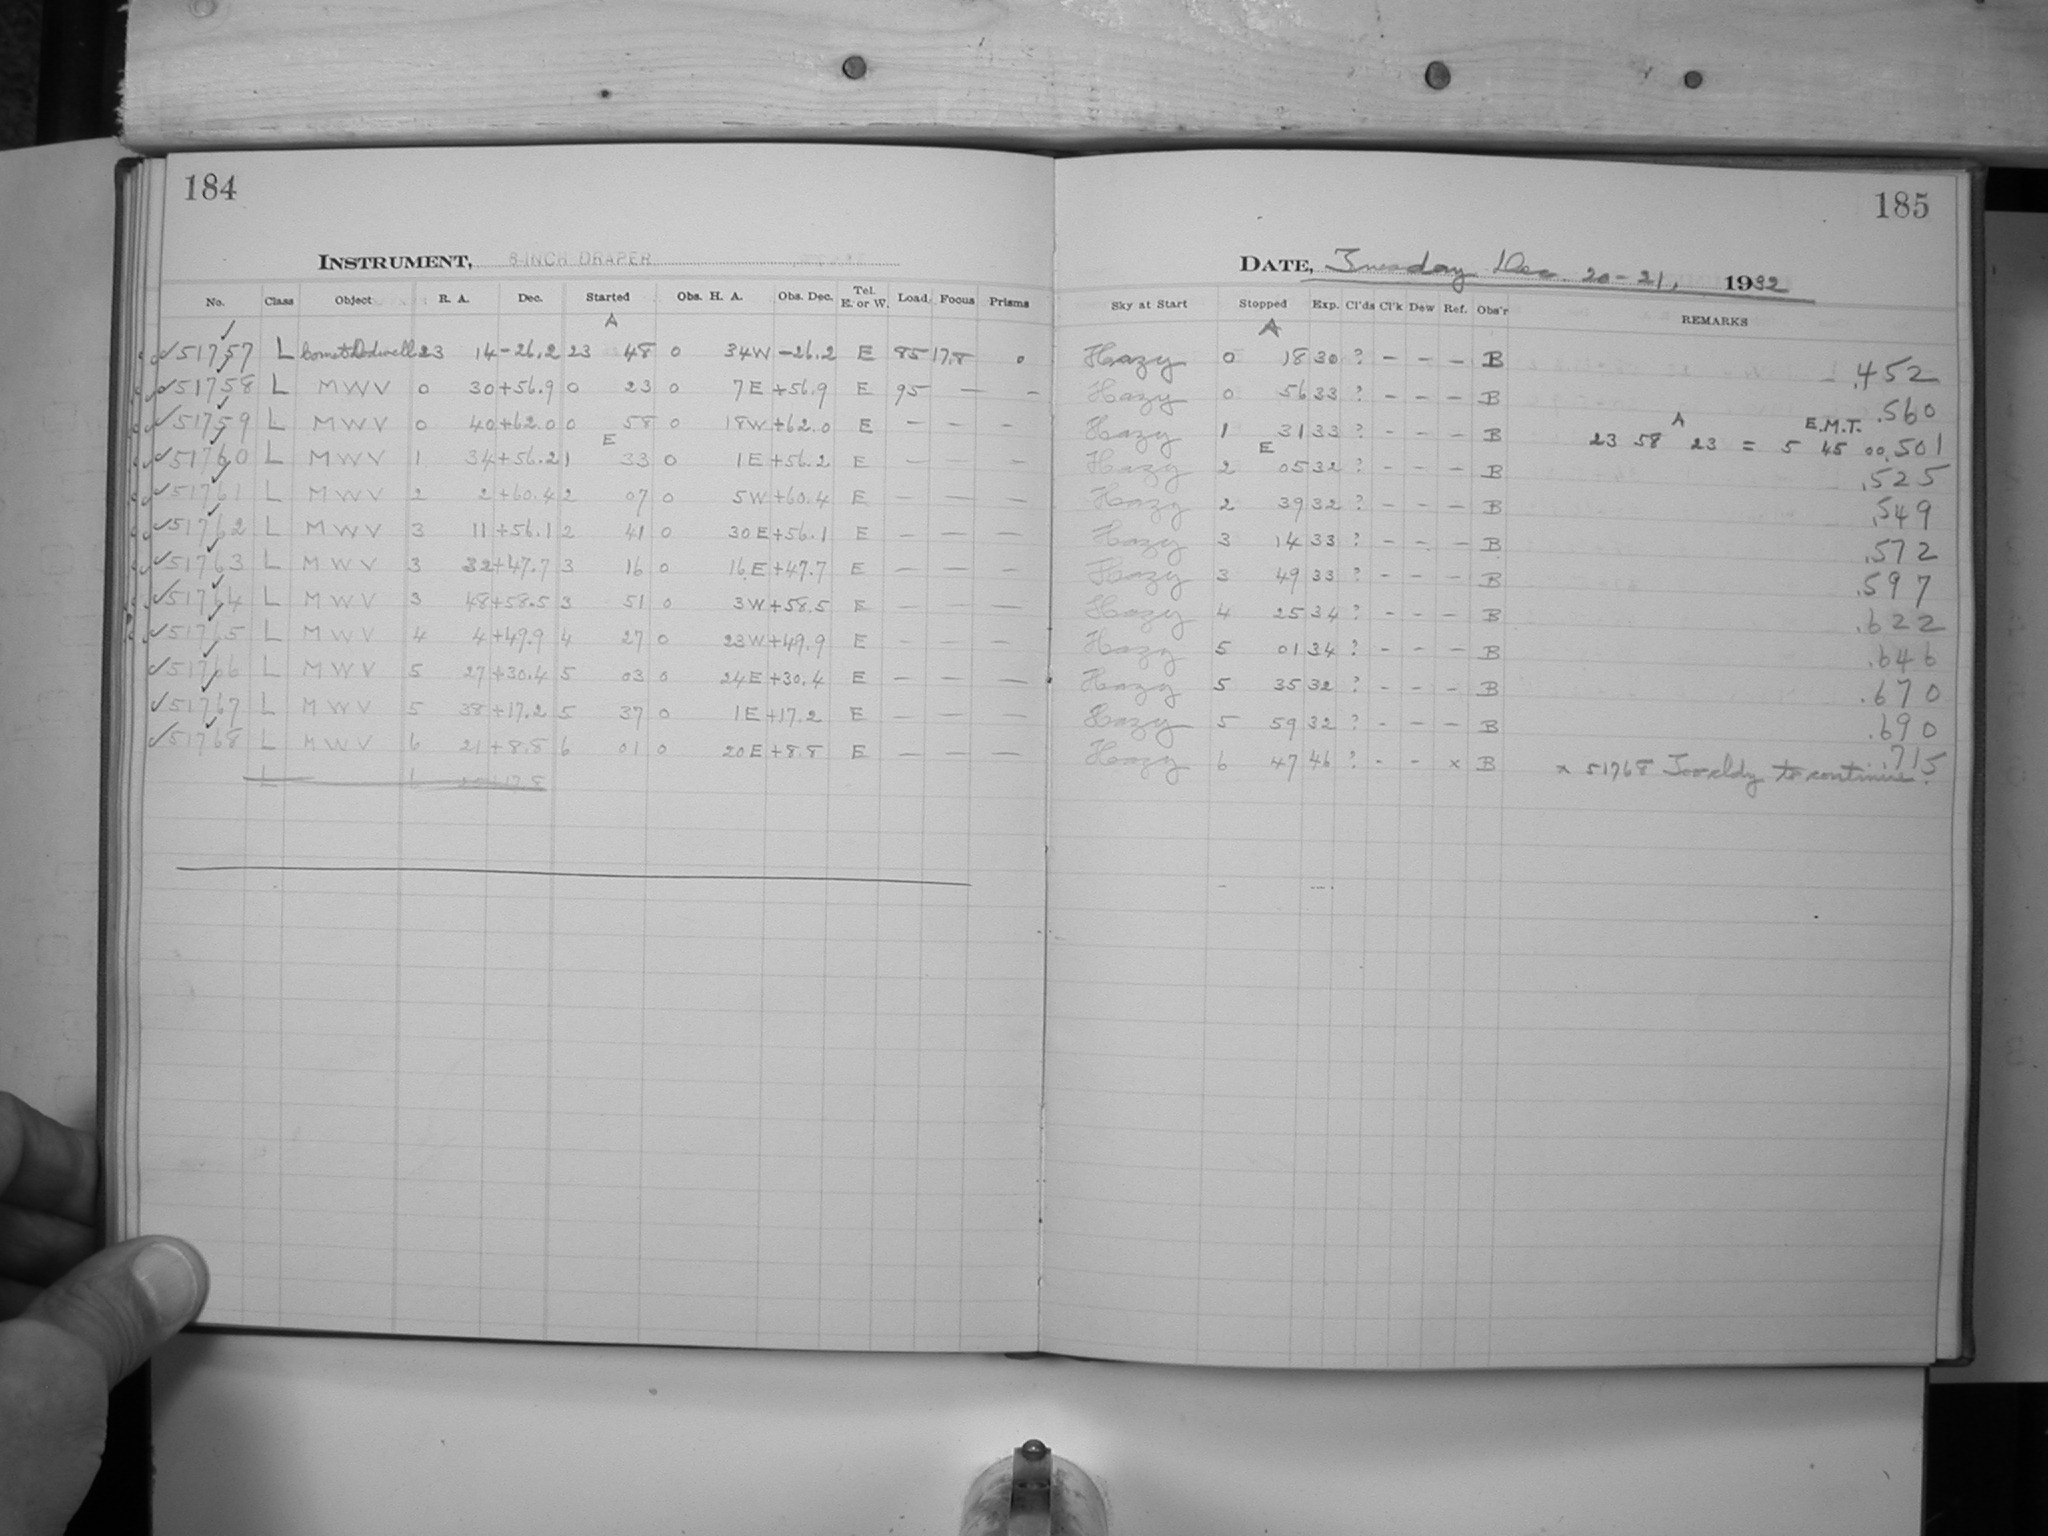 184
INSTRUMENT, 8-INCH DRAPER
No. Class Object R. A. Dec. Started Obs. H. A. Obs. Dec. Tel. E. or W. Load Focus Prisms
A
51757 L Comet Dodwell 23 14 -26.2 23 48 0 34W -26.2 E 85 17.8 0
51758 L MWV 0 30 +56.9 0 23 0 7E +56.9 E 95 — –
51759 L MWV 0 40 +62.0 0 58 0 18W +62.0 E – – –
E
51760 L MWV 1 34 +56.2 1 33 0 1E +56.2 E – — —
51761 L MWV 2 2 +60.4 2 07 0 5W +60.4 E — — —
51762 L MWV 3 11 +56.1 2 41 0 30E +56.1 E – — —
51763 L MWV 3 32 +47.7 3 16 0 16E +47.7 E — — —
51764 L MWV 3 48 +58.5 3 51 0 3W +58.5 E – — —
51765 L MWV 4 4 +49.9 4 27 0 23W +49.9 E — — —
51766 L MWV 5 27 +30.4 5 03 0 24E +30.4 E — — —
51767 L MWV 5 38 +17.2 5 37 0 1E +17.2 E — — —
51768 L MWV 6 21 +8.8 6 01 0 20E +8.8 E — — —
L 6
185
DATE, Tuesday Dec. 20-21, 1932
Sky at Start Stopped Exp. Cl'ds Cl'k Dew Ref. Obs'r REMARKS
A
Hazy 0 18 30 ? – – – B .452
Hazy 0 56 33 ? – – – B .560
A E.M.T.
Hazy 1 31 33 ? – – – B 23 58 23 = 5 45 00 .501
E
Hazy 2 05 32 ? – – – B .525
Hazy 2 39 32 ? – – – B .549
Hazy 3 14 33 ? – – – B .572
Hazy 3 49 33 ? – – – B .597
Hazy 4 25 34 ? – – – B .622
Hazy 5 01 34 ? – – – B .646
Hazy 5 35 32 ? – – – B .670
Hazy 5 59 32 ? – – – B .690
Hazy 6 47 46 ? – – x B .715
x 51768 Too cldy to continue.